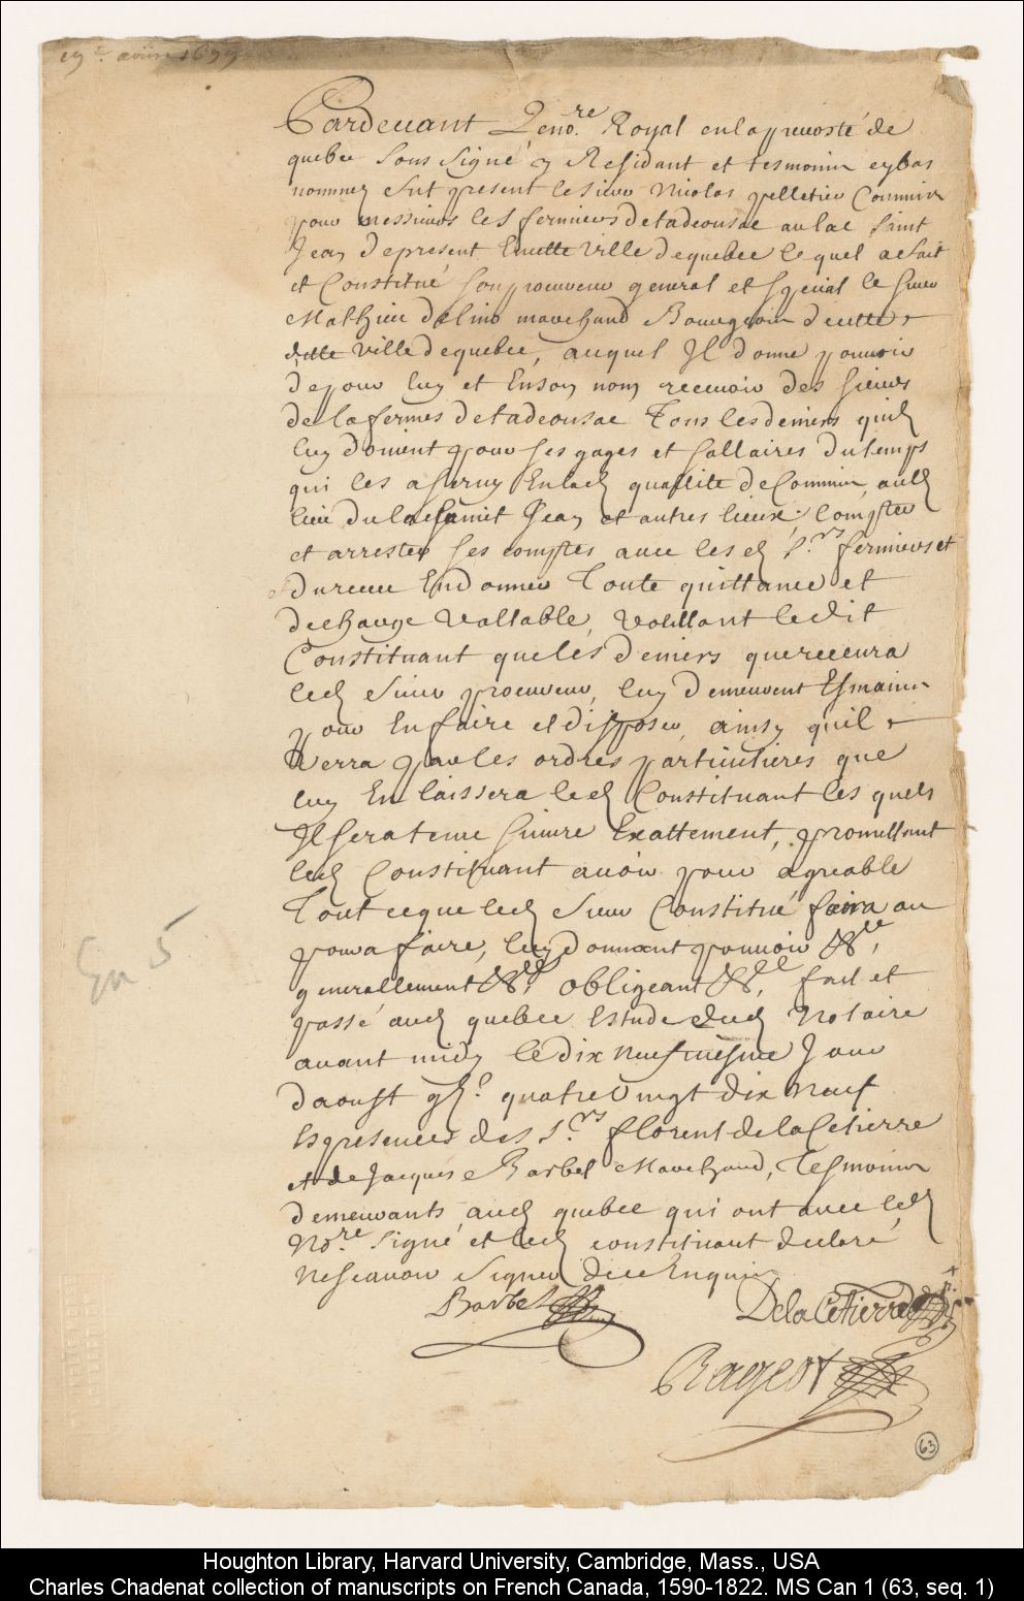 19e aoust 1699
Pardevant Le no.re Royal en la prevosté de
quebec sous signé y Residant et tesmoins cy bas
nommez fut present le sieur Nicolas pelletier Commis
pour messieurs les fermiers de tadousac au lac saint
Jean de present en cette ville de quebec le quel a fait
et Constitué son procureur general et special le sieur
Mathieu delino marchand Bourgeois de cette
ditte ville de quebec, auquel Il donne pouvoir
de pour luy et En son nom recevoir des sieurs
de la fermes de tadousac Tous les deniers quils
luy doivent pour ses gages et sallaires du temps
qui les a servy En lad quallite de Commis, aud
lieu du lac saint Jean et autres lieux; Compter
et arrester ses comptes avec les d s.rs fermiers et
du receu En donner Toute quittance et
descharge vallable, voullant ledit
Constituant que les deniers que recevra
led sieur procureur, luy demeurent Es mains
pour En faire et disposer, ainsy quil
verra par les ordres particulieres que
luy En laissera led Constituant les quels
Il sera tenu suivre Exattement, promettant
led Constituant avoir pour agreable
Tout ce que led sieur Constitué faira ou
poura faire, luy donnant pouvoir &c.,
generallement &c., obligeant &c., fait et
passé aud quebec Estude dud Notaire
avant midy le dix neufviesme Jour
daoust gbi.c quatre vingt dix neuf
Es presences des s.rs florent de la Cetierre
et de Jacques Barbel Marchand, Tesmoins
demeurants aud quebec qui ont avec led
No.re signé et led constituant declaré
ne scavoir signer de ce Enquis
Barbel
De la Cetierre
Rageot
En 5
63
Houghton Library, Harvard University, Cambridge, Mass., USA
Charles Chadenat collection of manuscripts on French Canada, 1590-1822. MS Can 1 (63, seq. 1)